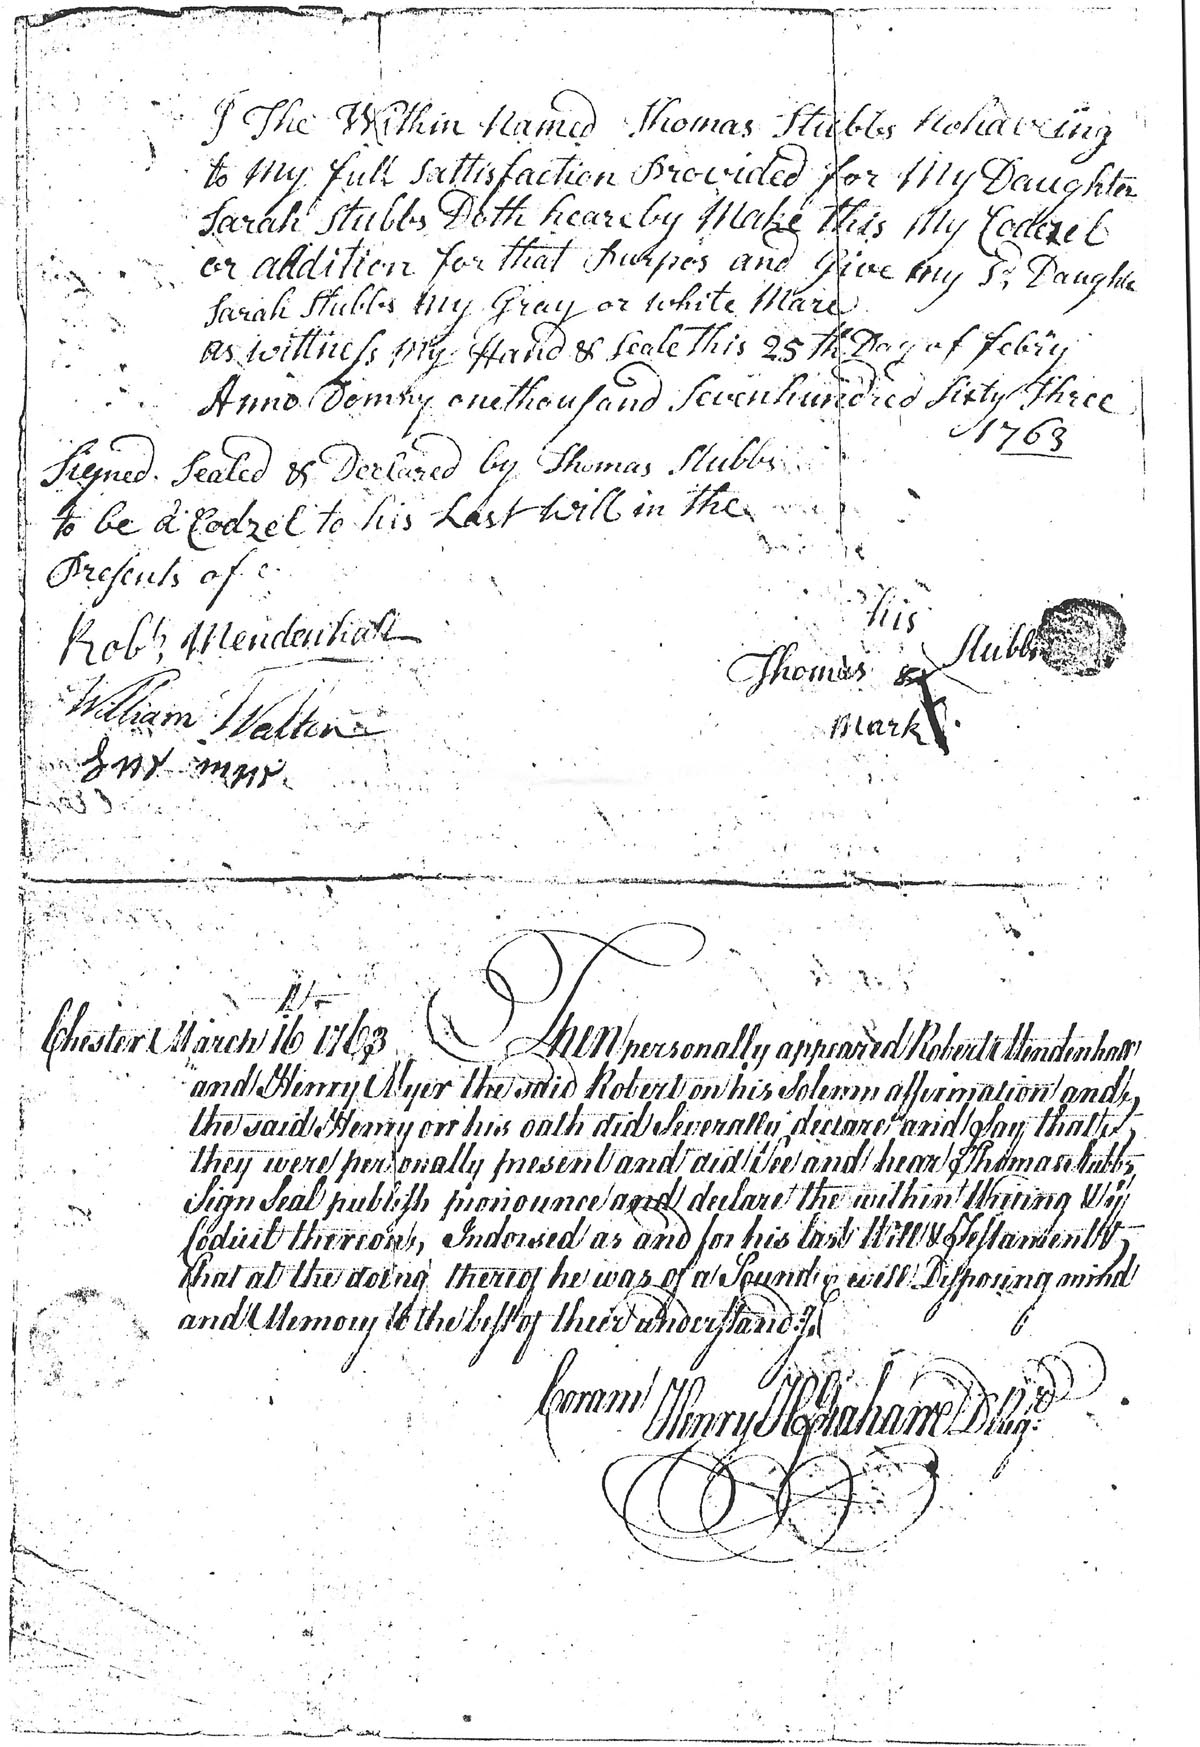 I The Within Named Thomas Stubbs Nohaveing
to My full sattisfaction Provided for My Daughter
Sarah Stubbs Doth heareby Make this My Codzel
or addition for that Purpos and Give my Sd Daughter
Sarah Stubbs My Gray or white Mare
as wittness My Hand & Seale this 25th Day of febry
Anno Domny onethousand Sevenhundred Sixty Three
1763
Signed. Sealed & Declared by Thomas Stubbs
to be a Codzel to his Last Will in the
Presents of
Robt. Mendenhall
William Walton
his
Thomas Stubbs
Mark
Chester March 16 1763 Then personally appeared Robert Mendenhall
and Henry Myer the said Robert on his Solemn affirmation and
the said Henry on his oath did Severally declare and Say that
they were personally present and did See and hear Thomas Stubbs
Sign Seal publish pronounce and declare the within Writing
Codicil thereon, Indorsed as and for his last Will & Testament &
that at the doing thereof he was of a Sound & well Disposing mind
and Memory to the best of their understandgs
Coram Henry Hale Grahame D Regr